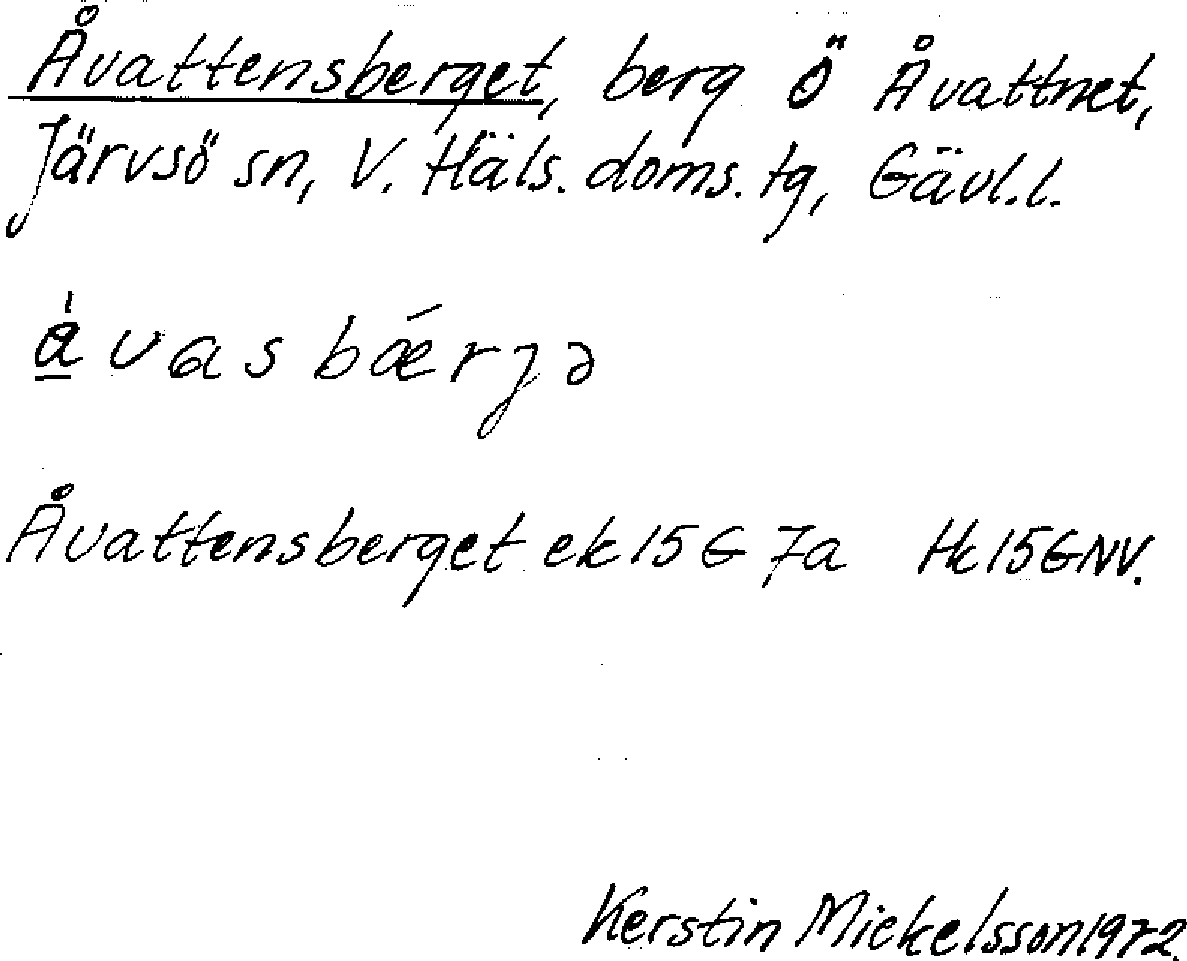 Åvattensberget, berg Ö Åvattnet,
Järvsö sn, V. Häls. doms. tg, Gävl. l.
a̠̍vasbǽrjə
Åvattensberget ek 15G 7a Hk 15GNV.
Kerstin Mickelsson 1972.